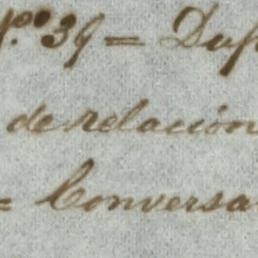 Nº 39 = Dup
de relacion
= Conversa